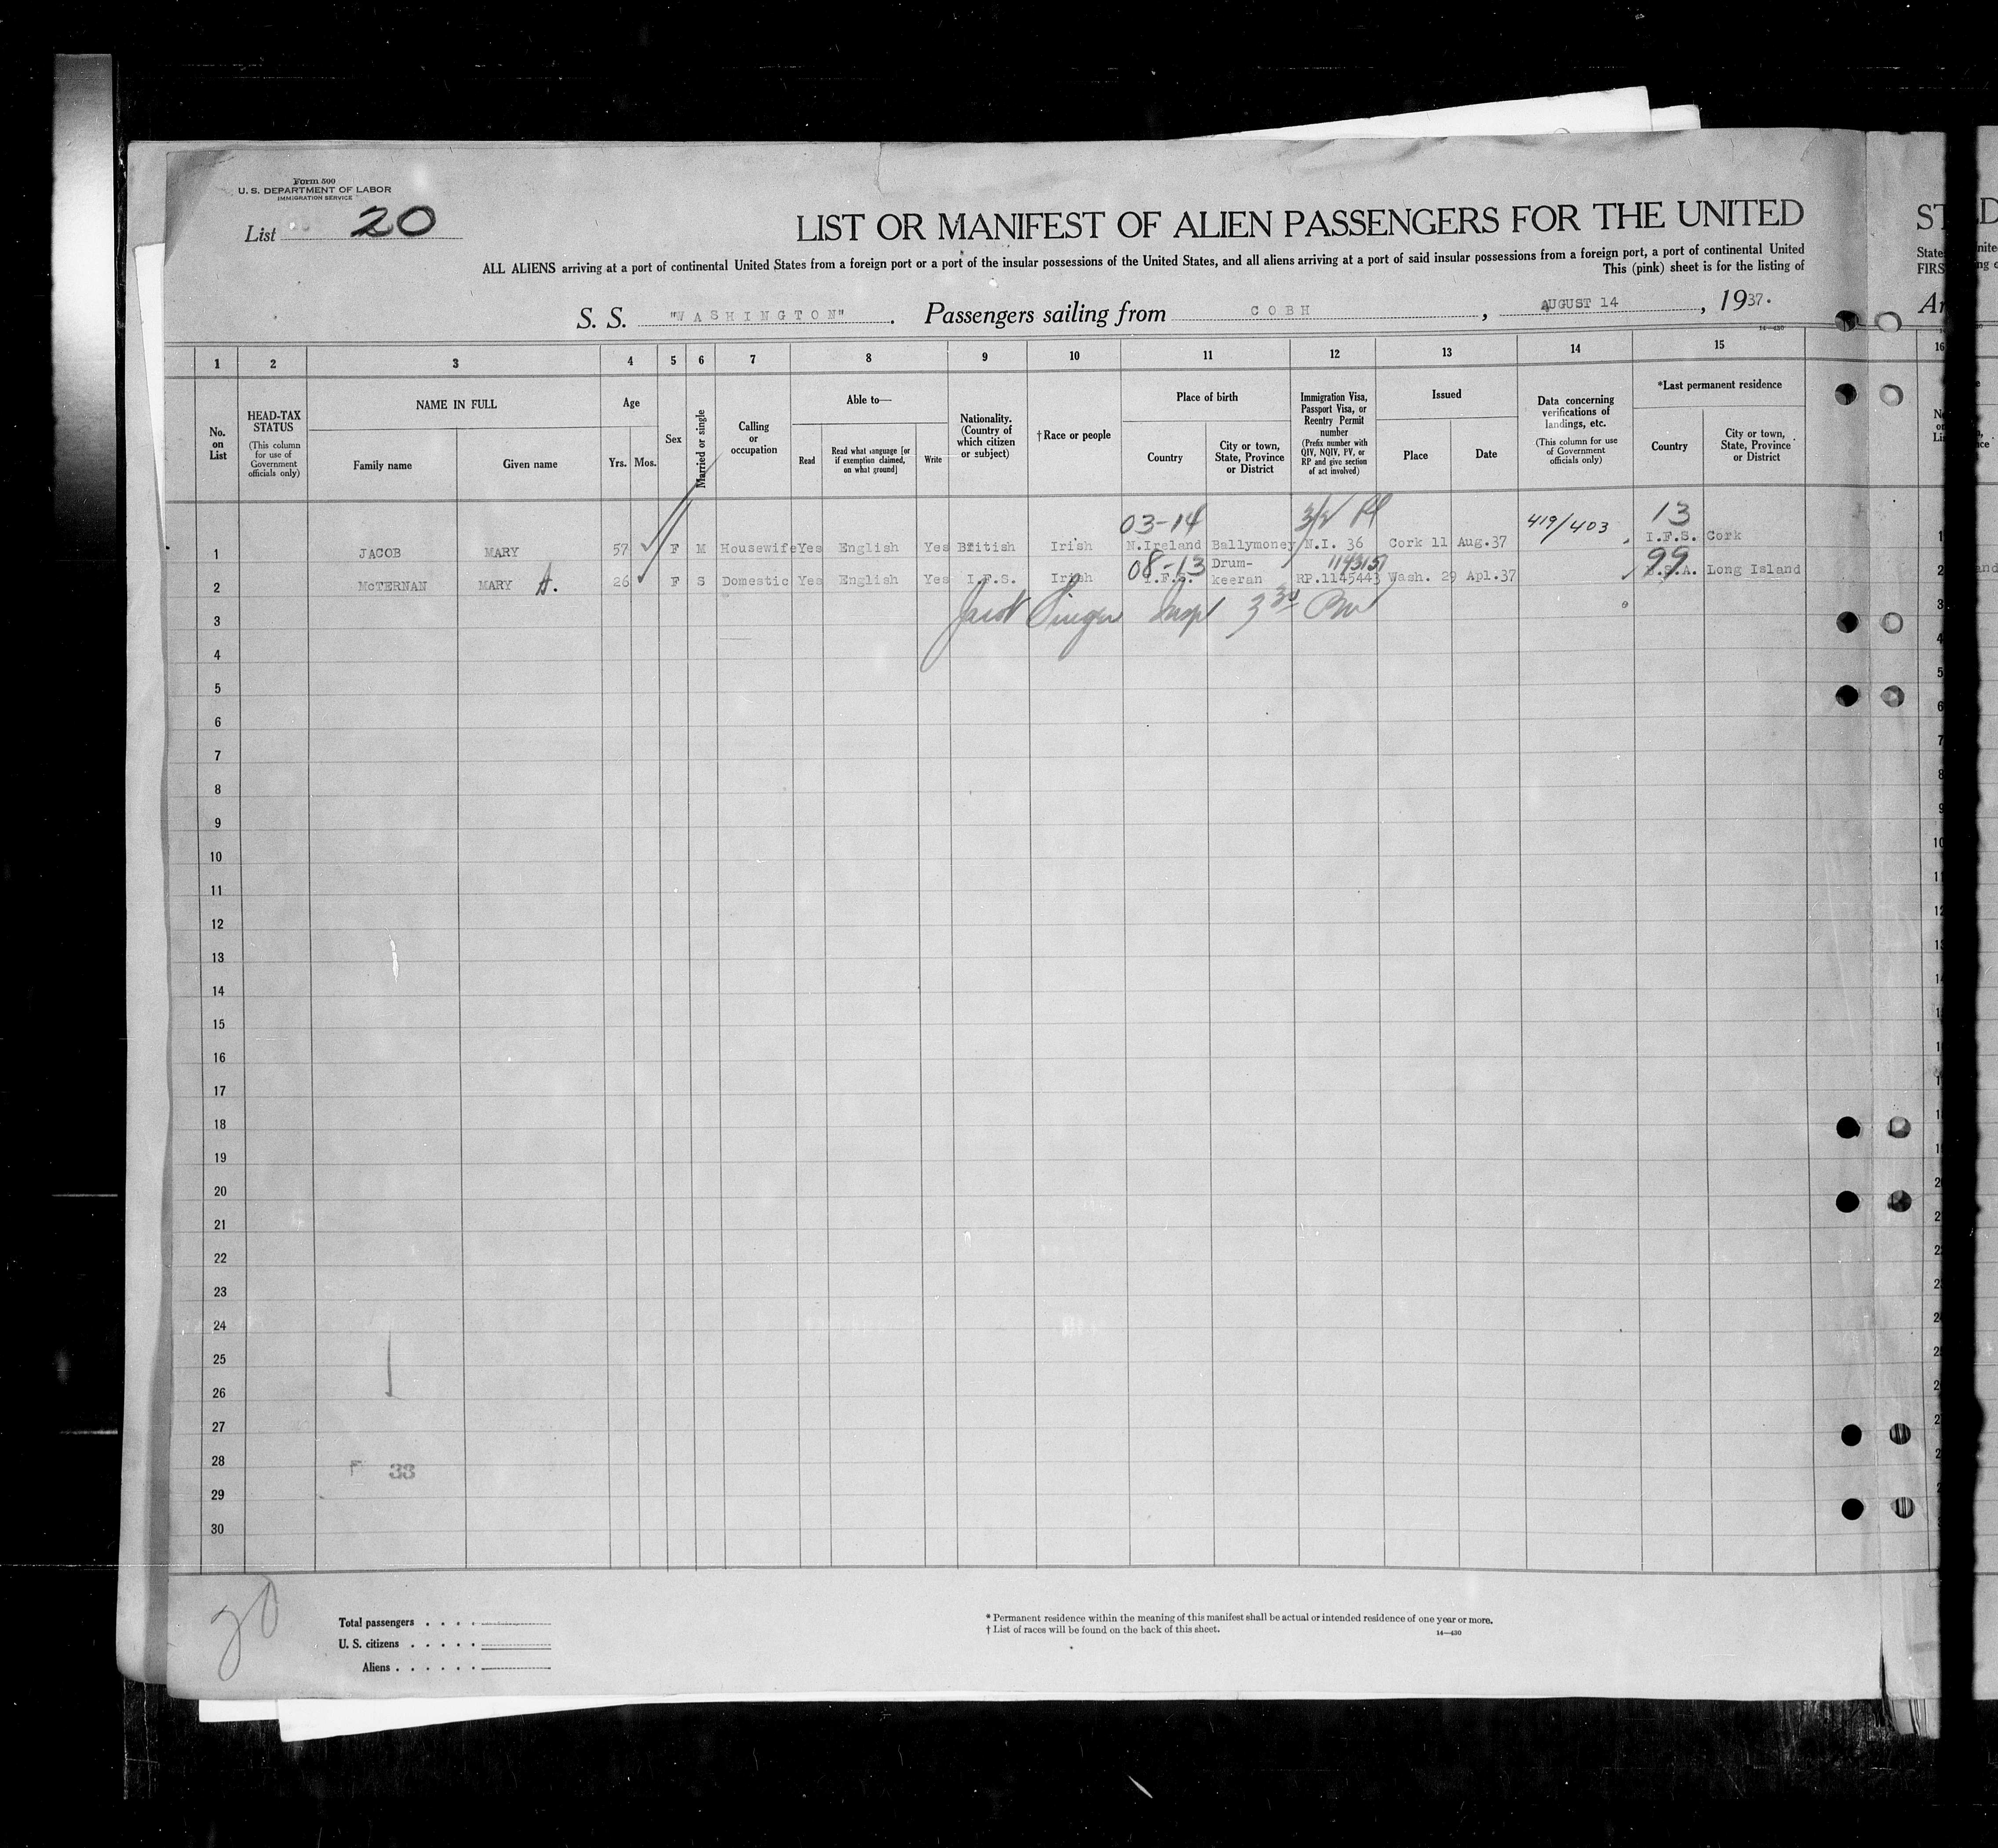 Form 500
U. S. DEPARTMENT OF LABOR
IMMIGRATION SERVICE
List 20
LIST OR MANIFEST OF ALIEN PASSENGERS FOR THE UNITED
ALL ALIENS arriving at a port of continental United States from a foreign port or a port of the insular possessions of the United States, and all aliens arriving at a port of said insular possessions from a foreign port, a port of continental United
This (pink) sheet is for the listing of
S. S. "WASHINGTON". Passengers sailing from COBH, AUGUST 14, 1937.
14—430
1 2 3 4 5 6 7 8 9 10 11 12 13 14 15 16
No. on List
HEAD-TAX STATUS (This column for use of Government officials only)
NAME IN FULL
Family name
Given name
Age
Yrs. Mos.
Sex
Married or single
Calling or occupation
Able to—
Read
Read what language [or if exemption claimed, on what ground]
Write
Nationality. (Country of which citizen or subject)
†Race or people
Place of birth
Country
City or town, State, Province or District
Immigration Visa, Passport Visa, or Reentry Permit number (Prefix number with QIV, NQIV, PV, or RP and give section of act involved)
Issued
Place
Date
Data concerning verifications of landings, etc. (This column for use of Government officials only)
*Last permanent residence
Country
City or town, State, Province or District
03-14 419/403 13
1 JACOB MARY 57 F M Housewife Yes English Yes British Irish N.Ireland Ballymoney N.I. 36 Cork 11 Aug.37 I.F.S. Cork
08-13 1143151 99
2 McTERNAN MARY A. 26 F S Domestic Yes English Yes I.F.S. Irish I.F.S. Drum-keeran RP.1145443 Wash. 29 Apl.37 U.S.A. Long Island
3 Jacob Singer Insp
4
5
6
7
8
9
10
11
12
13
14
15
16
17
18
19
20
21
22
23
24
25
26
27
28 F 33
29
30
20
Total passengers
U. S. citizens
Aliens
* Permanent residence within the meaning of this manifest shall be actual or intended residence of one year or more.
† List of races will be found on the back of this sheet.
14—430